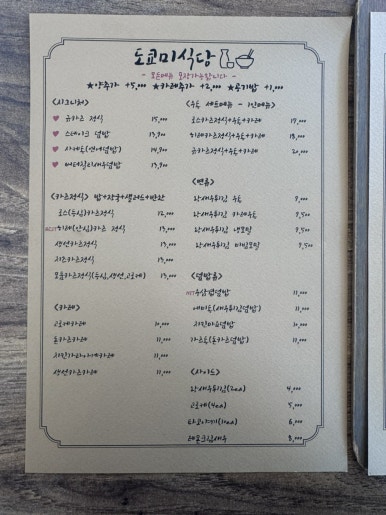 도쿄미식당
- 모든메뉴 포장가능합니다 -
★양추가 +5,000 ★카레추가 +2,000 ★공기밥 +1,000
<시그니처>
♥ 규카츠 정식 15,000
♥ 스테이크 덮밥 13,900
♥ 사케동(연어덮밥) 14,900
♥ 버터칠리새우덮밥 13,900
<카츠정식> 밥+장국+샐러드+반찬
로스(등심)카츠정식 12,000
BEST히레(안심)카츠 정식 13,000
생선카츠정식 13,000
치즈카츠정식 13,000
모듬카츠정식(등심,생선,고로케) 13,000
<카레>
고로케카레 10,000
돈카츠카레 11,000
치킨가라아게카레 11,000
생선카츠카레 11,000
<우동 세트메뉴 - 1인메뉴>
로스카츠정식+우동+카레 17,000
히레카츠정식+우동+카레 18,000
규카츠정식+우동+카레 20,000
<면류>
왕새우튀김 우동 9,000
왕새우튀김 카레우동 9,500
왕새우튀김 냉모밀 9,500
왕새우튀김 비빔모밀 9,500
<덮밥류>
HOT우삼겹덮밥 11,000
에비동(새우튀김덮밥) 11,000
치킨마요덮밥 10,000
가츠동(돈카츠덮밥) 11,000
<사이드>
왕새우튀김(2ea) 4,000
고로케(4ea) 5,000
타코야끼(10ea) 6,000
레몬크림새우 8,000